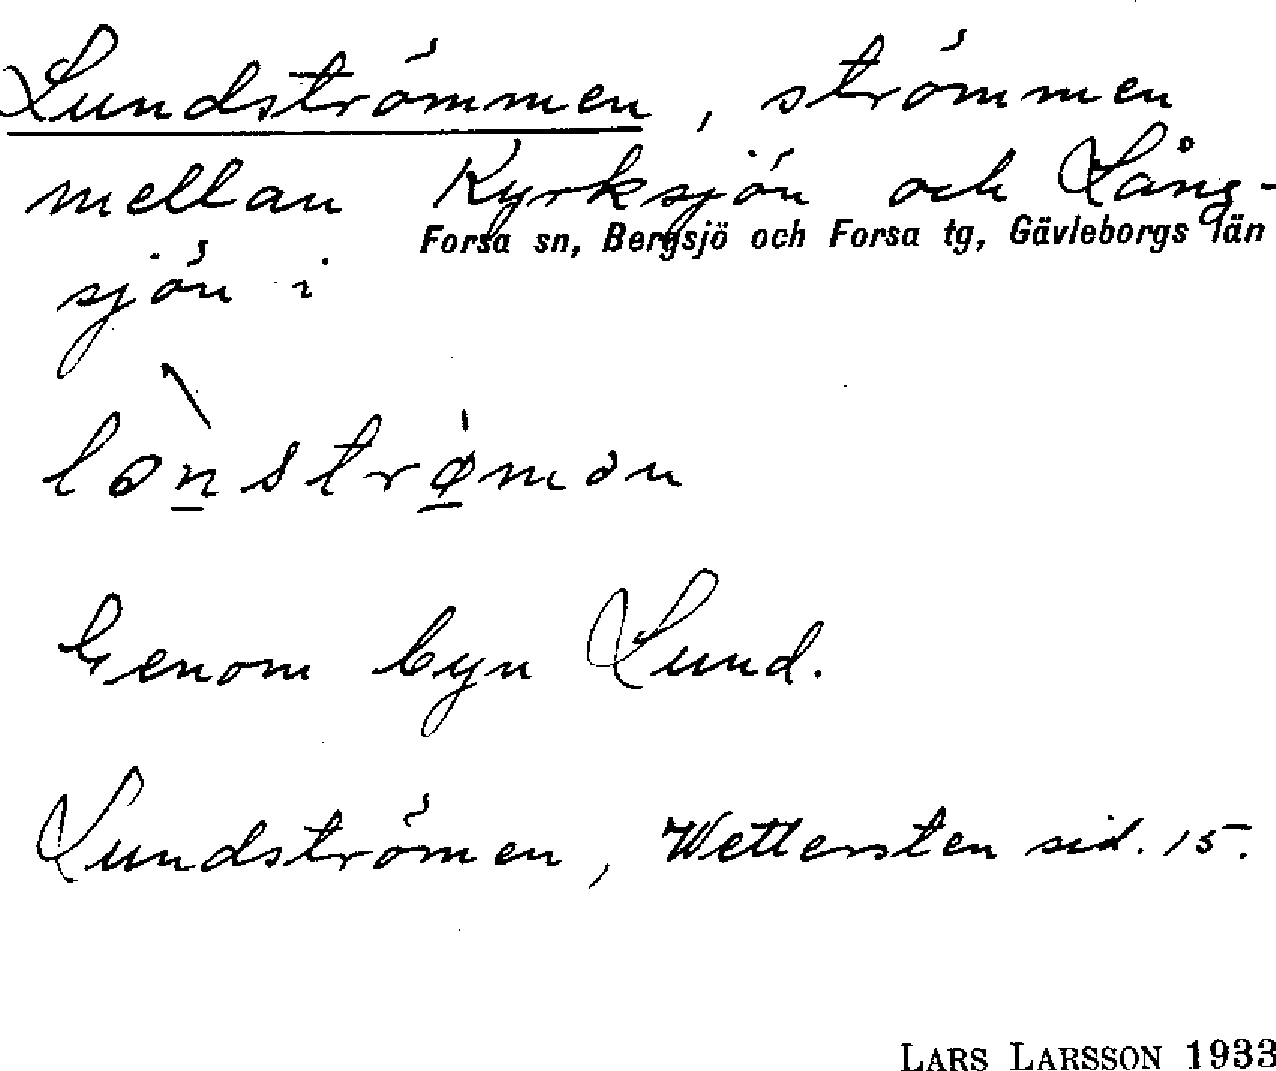 Lundströmmen, strömmen
mellan Kyrksjön och Lång-
Forsa sn, Bergsjö och Forsa tg, Gävleborgs län
sjön i
lɵnstrømən
Genom byn Lund.
Lundströmen, Wettersten sid. 15.
LARS LARSSON 1933